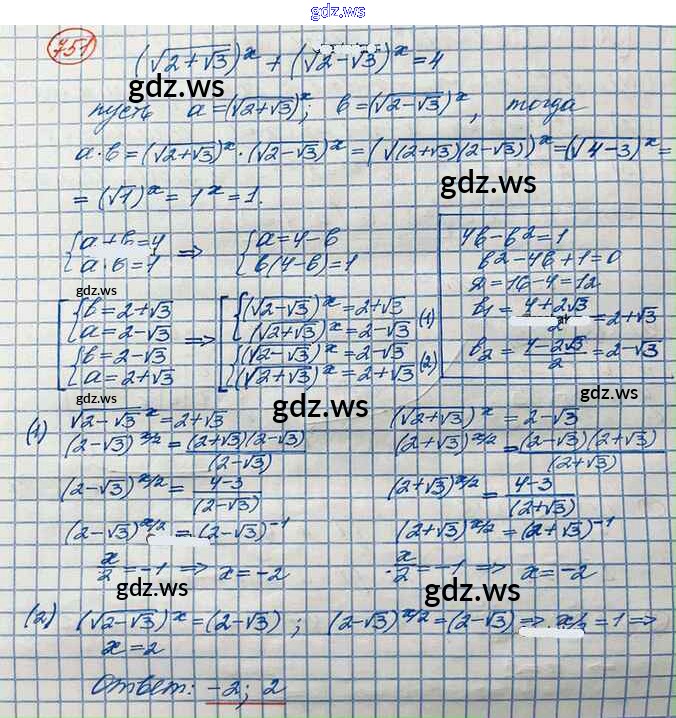 gdz.ws
751
(√2+√3)^x + (√2-√3)^x = 4
gdz.ws
пусть a = (√2+√3)^x; b = (√2-√3)^x, тогда
a·b = (√2+√3)^x · (√2-√3)^x = (√(2+√3)(2-√3))^x = (√4-3)^x =
gdz.ws
= (√1)^x = 1^x = 1.
{a+b=4 ⇒ {a=4-b
{a·b=1 {b(4-b)=1
4b-b²=1
b²-4b+1=0
Д=16-4=12
b₁ = (4+2√3)/2 = 2+√3
b₂ = (4-2√3)/2 = 2-√3
gdz.ws
gdz.ws
[{b=2+√3 ⇒ [{(√2-√3)^x = 2+√3 (1)
{a=2-√3 {(√2+√3)^x = 2-√3
{b=2-√3 {(√2-√3)^x = 2-√3 (2)
{a=2+√3 {(√2+√3)^x = 2+√3
gdz.ws
gdz.ws
gdz.ws
(1) √2-√3^x = 2+√3 (√2+√3)^x = 2-√3
(2-√3)^x/2 = (2+√3)(2-√3)/(2-√3) (2+√3)^x/2 = (2-√3)(2+√3)/(2+√3)
(2-√3)^x/2 = 4-3/(2-√3) (2+√3)^x/2 = 4-3/(2+√3)
(2-√3)^x/2 = (2-√3)^-1 (2+√3)^x/2 = (2+√3)^-1
x/2 = -1 ⇒ x = -2 x/2 = -1 ⇒ x = -2
gdz.ws
gdz.ws
(2) (√2-√3)^x = (2-√3); (2-√3)^x/2 = (2-√3) ⇒ x/2 = 1 ⇒
x = 2
Ответ: -2; 2